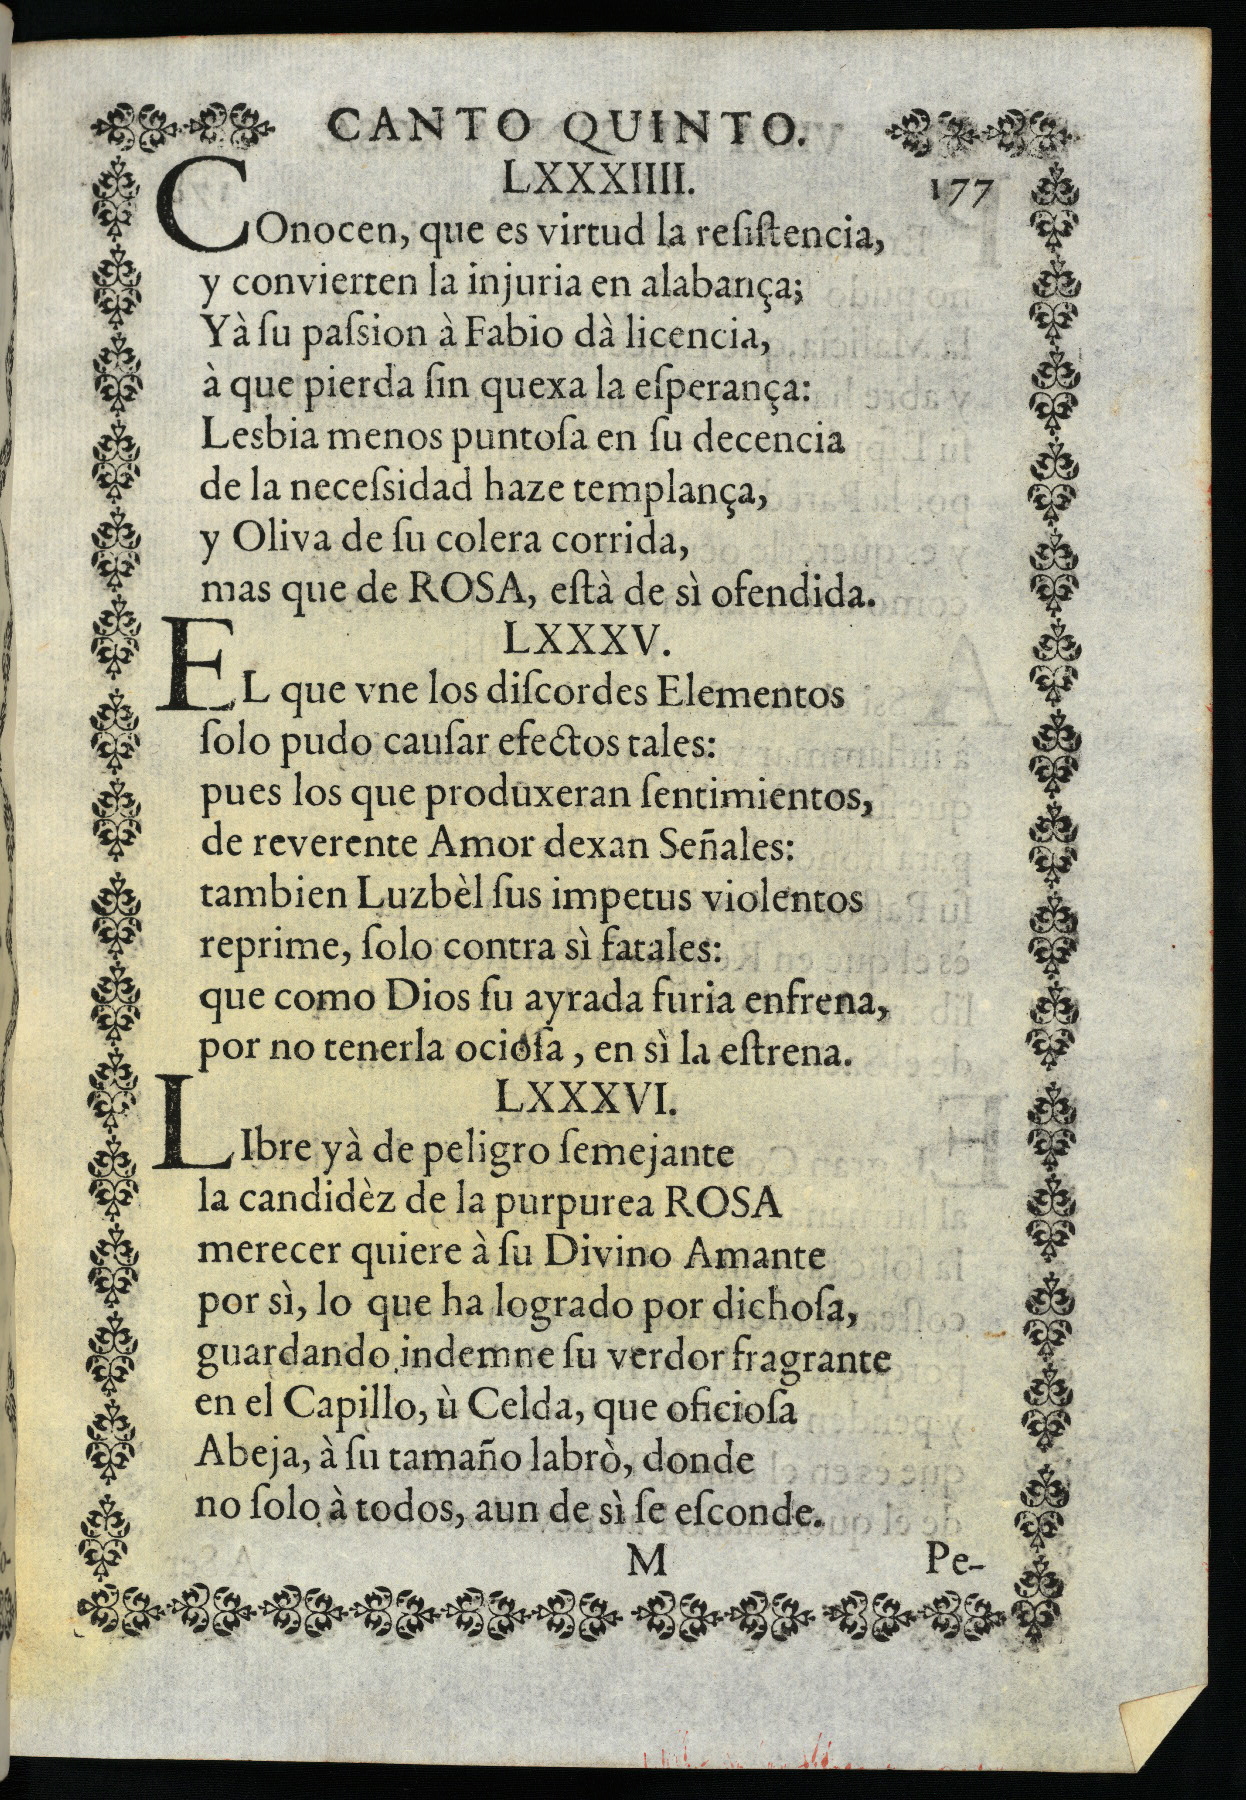 CANTO QUINTO.
LXXXIIII.
177
COnocen, que es virtud la reſiſtencia,
y convierten la injuria en alabança;
Yà ſu paſsion à Fabio dà licencia,
à que pierda ſin quexa la eſperança:
Lesbia menos puntoſa en ſu decencia
de la neceſsidad haze templança,
y Oliva de ſu colera corrida,
mas que de ROSA, eſtà de sì ofendida.
LXXXV.
EL que vne los diſcordes Elementos
ſolo pudo cauſar efectos tales:
pues los que produxeran ſentimientos,
de reverente Amor dexan Señales:
tambien Luzbèl ſus impetus violentos
reprime, ſolo contra sì fatales:
que como Dios ſu ayrada furia enfrena,
por no tenerla ocioſa, en sì la eſtrena.
LXXXVI.
LIbre yà de peligro ſemejante
la candidèz de la purpurea ROSA
merecer quiere à ſu Divino Amante
por sì, lo que ha logrado por dichoſa,
guardando indemne ſu verdor fragrante
en el Capillo, ù Celda, que oficioſa
Abeja, à ſu tamaño labrò, donde
no ſolo à todos, aun de sì ſe eſconde.
M Pe-